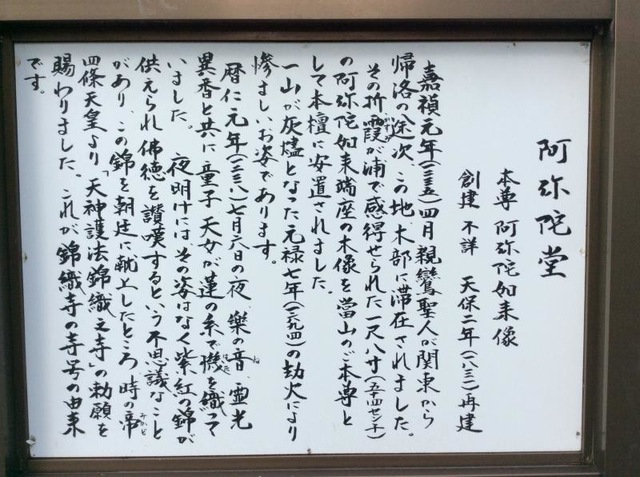 阿弥陀堂
本尊 阿弥陀如来像
創建 不詳 天保二年(一八三一)再建
嘉禎元年(一二三五)四月 親鸞聖人が関東から
帰洛の途次、この地、木部に滞在されました。
その折霞が浦で感得せられた一尺八寸(五十四センチ)
の阿弥陀如来端座の木像を當山のご本尊と
して本壇に安置されました。
一山が灰燼となった元禄七年(一六九四)の劫火により
惨ましいお姿であります。
暦仁元年(一二三八)七月六日の夜 樂の音、霊光
異香と共に童子 天女が蓮の糸で機を織って
いました。 夜明けには、その姿はなく紫紅の錦が
供えられ佛徳を讃嘆するという不思議なこと
があり、この錦を朝廷に献上したところ 時の帝
四條天皇より「天神護法錦織之寺」の勅願を
賜わりました。これが錦織寺の寺号の由来
です。